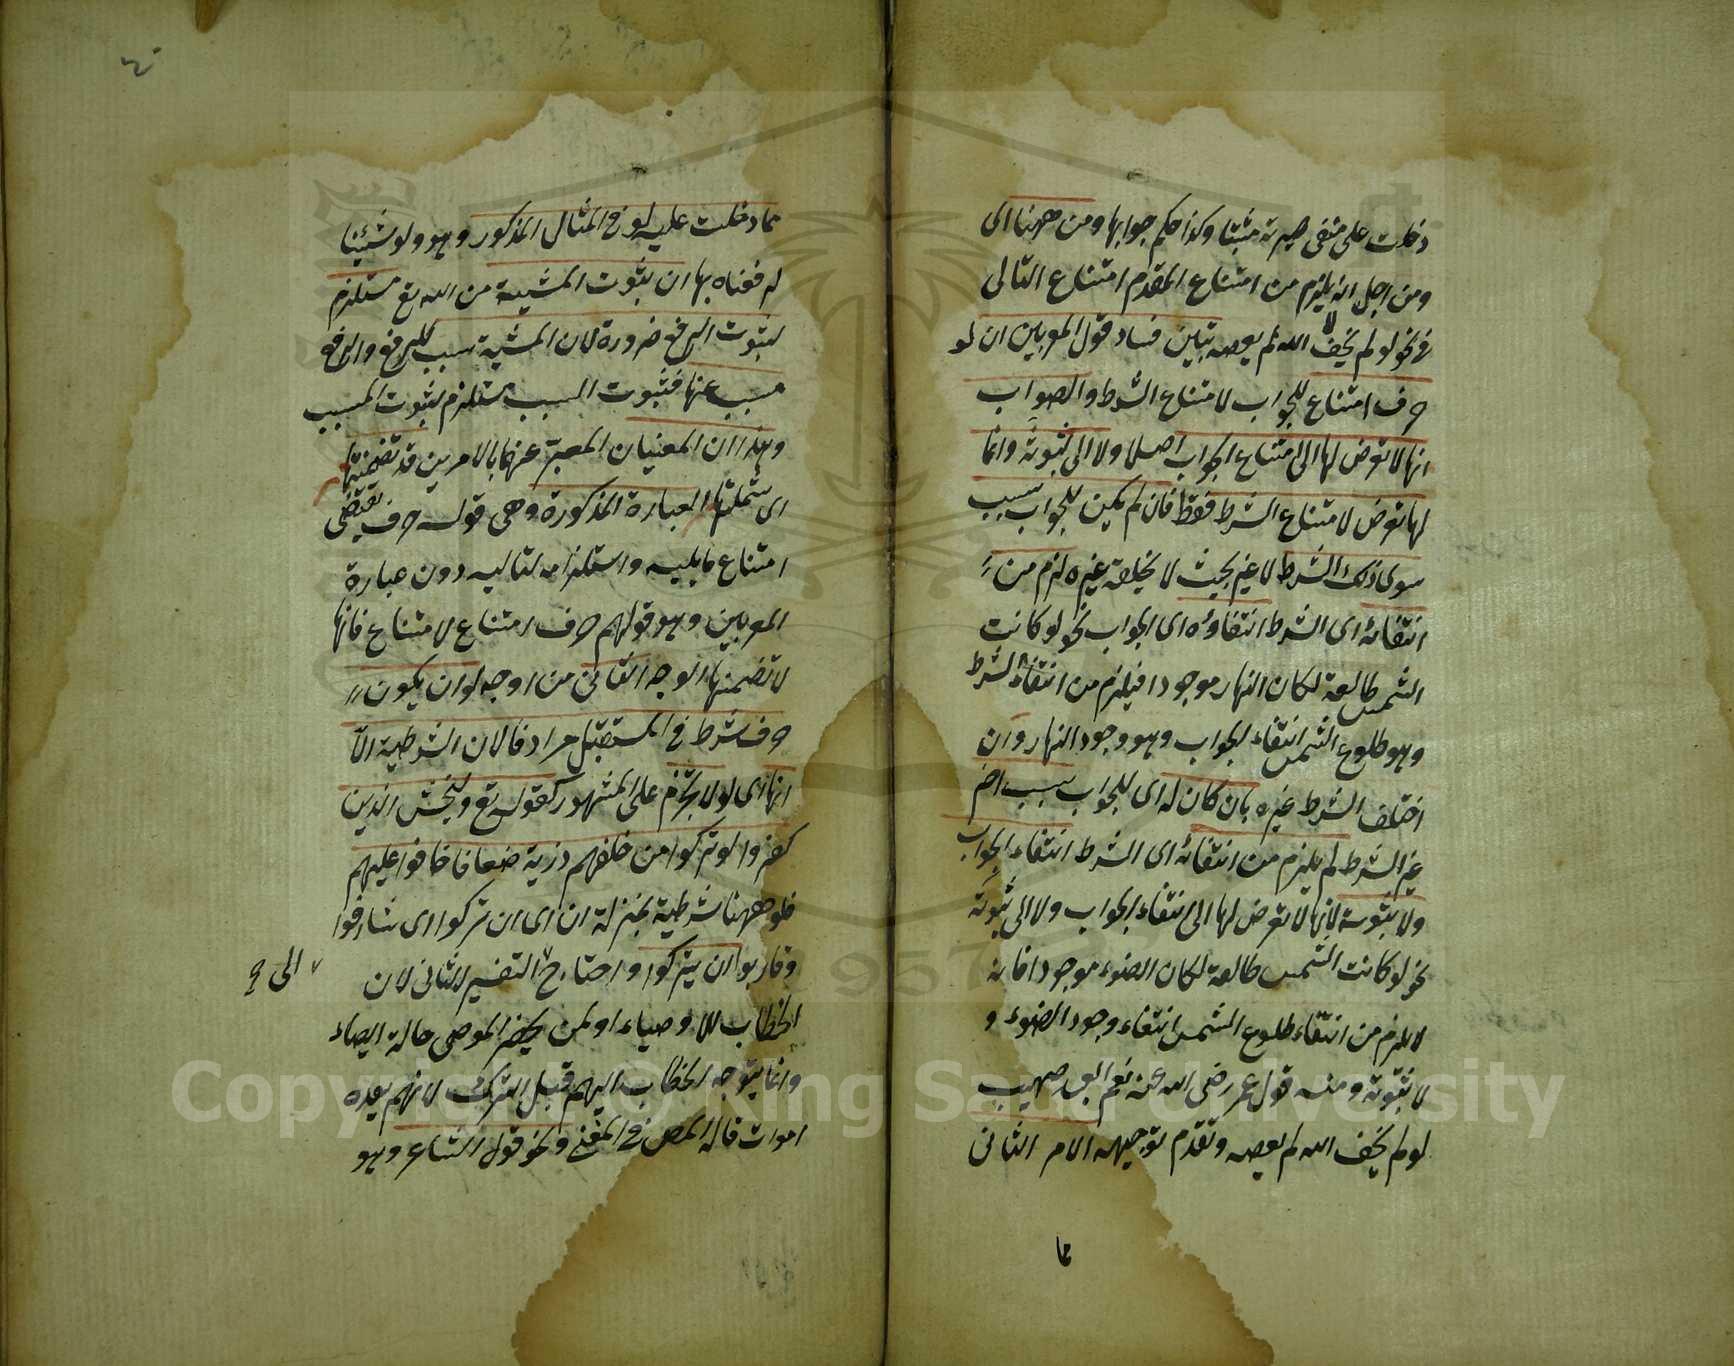 دخلت على منفى صيرته مثبتا وكذا حكم جوابها ومن ههنا اى
ومن اجل انه يلزم من امتناع المقدم امتناع التالى
فى نحو لو لم يخف الله لم يعصه تبين فساد قول المعربين ان لو
حرف امتناع للجواب لامتناع الشرط والصواب
انها لا تعرض لها الى امتناع الجواب اصلا ولا الى ثبوته وانما
لها تعرض لامتناع الشرط فقط فان لم يكن للجواب سبب
سوى ذلك الشرط لا غير بحيث لا يخلفه غيره لزم من
انتفائه اى الشرط انتفاؤه اى الجواب نحو لو كانت
الشمس طالعة لكان النهار موجودا فيلزم من انتفاء الشرط
وهو طلوع الشمس انتفاء الجواب وهو وجود النهار وان
اختلف الشرط غيره بان كان له اى للجواب سبب اخر
غير الشرط لم يلزم من انتفائه اى الشرط انتفاء الجواب
ولا ثبوته لانها لا تعرض لها الى انتفاء الجواب ولا الى ثبوته
نحو لو كانت الشمس طالعة لكان الضوء موجودا فانه
لا يلزم من انتفاء طلوع الشمس انتفاء وجود الضوء و
لا ثبوته ومنه قول عمر رضى الله عنه نعم العبد صهيب
لو لم يخف الله لم يعصه وتقدم توجيهه الامر الثانى
مما
مما دخلت عليه لو فى المثال المذكور وهو ولو شئنا
لرفعناه بها ان ثبوت المشيئة من الله تع مستلزم
لثبوت الرفع ضرورة لان المشيئة سبب للرفع والرفع
مسبب عنها فثبوت السبب مستلزم لثبوت المسبب
وهذا ان المعنيان المعبر عنهما بالامرين قد تضمنتها
اى شملتها العبارة المذكورة وهى قوله حرف يقتضى
امتناع ما يليه واستلزامه لتاليه دون عبارة
المعربين وهو قولهم حرف امتناع لامتناع فانها
لا تضمنها الوجه الثانى من اوجه لو ان يكون
حرف شرط فى المستقبل مرادفا لان الشرطية الا
انها اى لو لا تجزم على المشهور كقوله تع وليخش الذين
كفروا لو تركوا من خلفهم ذرية ضعافا خافوا عليهم
فلو ههنا شرطية بمنزلة ان اى ان تركوا اى شارفوا
وقاربوا ان يتركوا واحتاج التفسير الثانى لان
الى
الخطاب للاوصياء او لمن يحضر الموصى حالة ايصاء
وانما يتوجه الخطاب اليهم قبل الترك لانهم بعده
اموات قاله المص فى المغنى ونحو قول الشاعر وهو